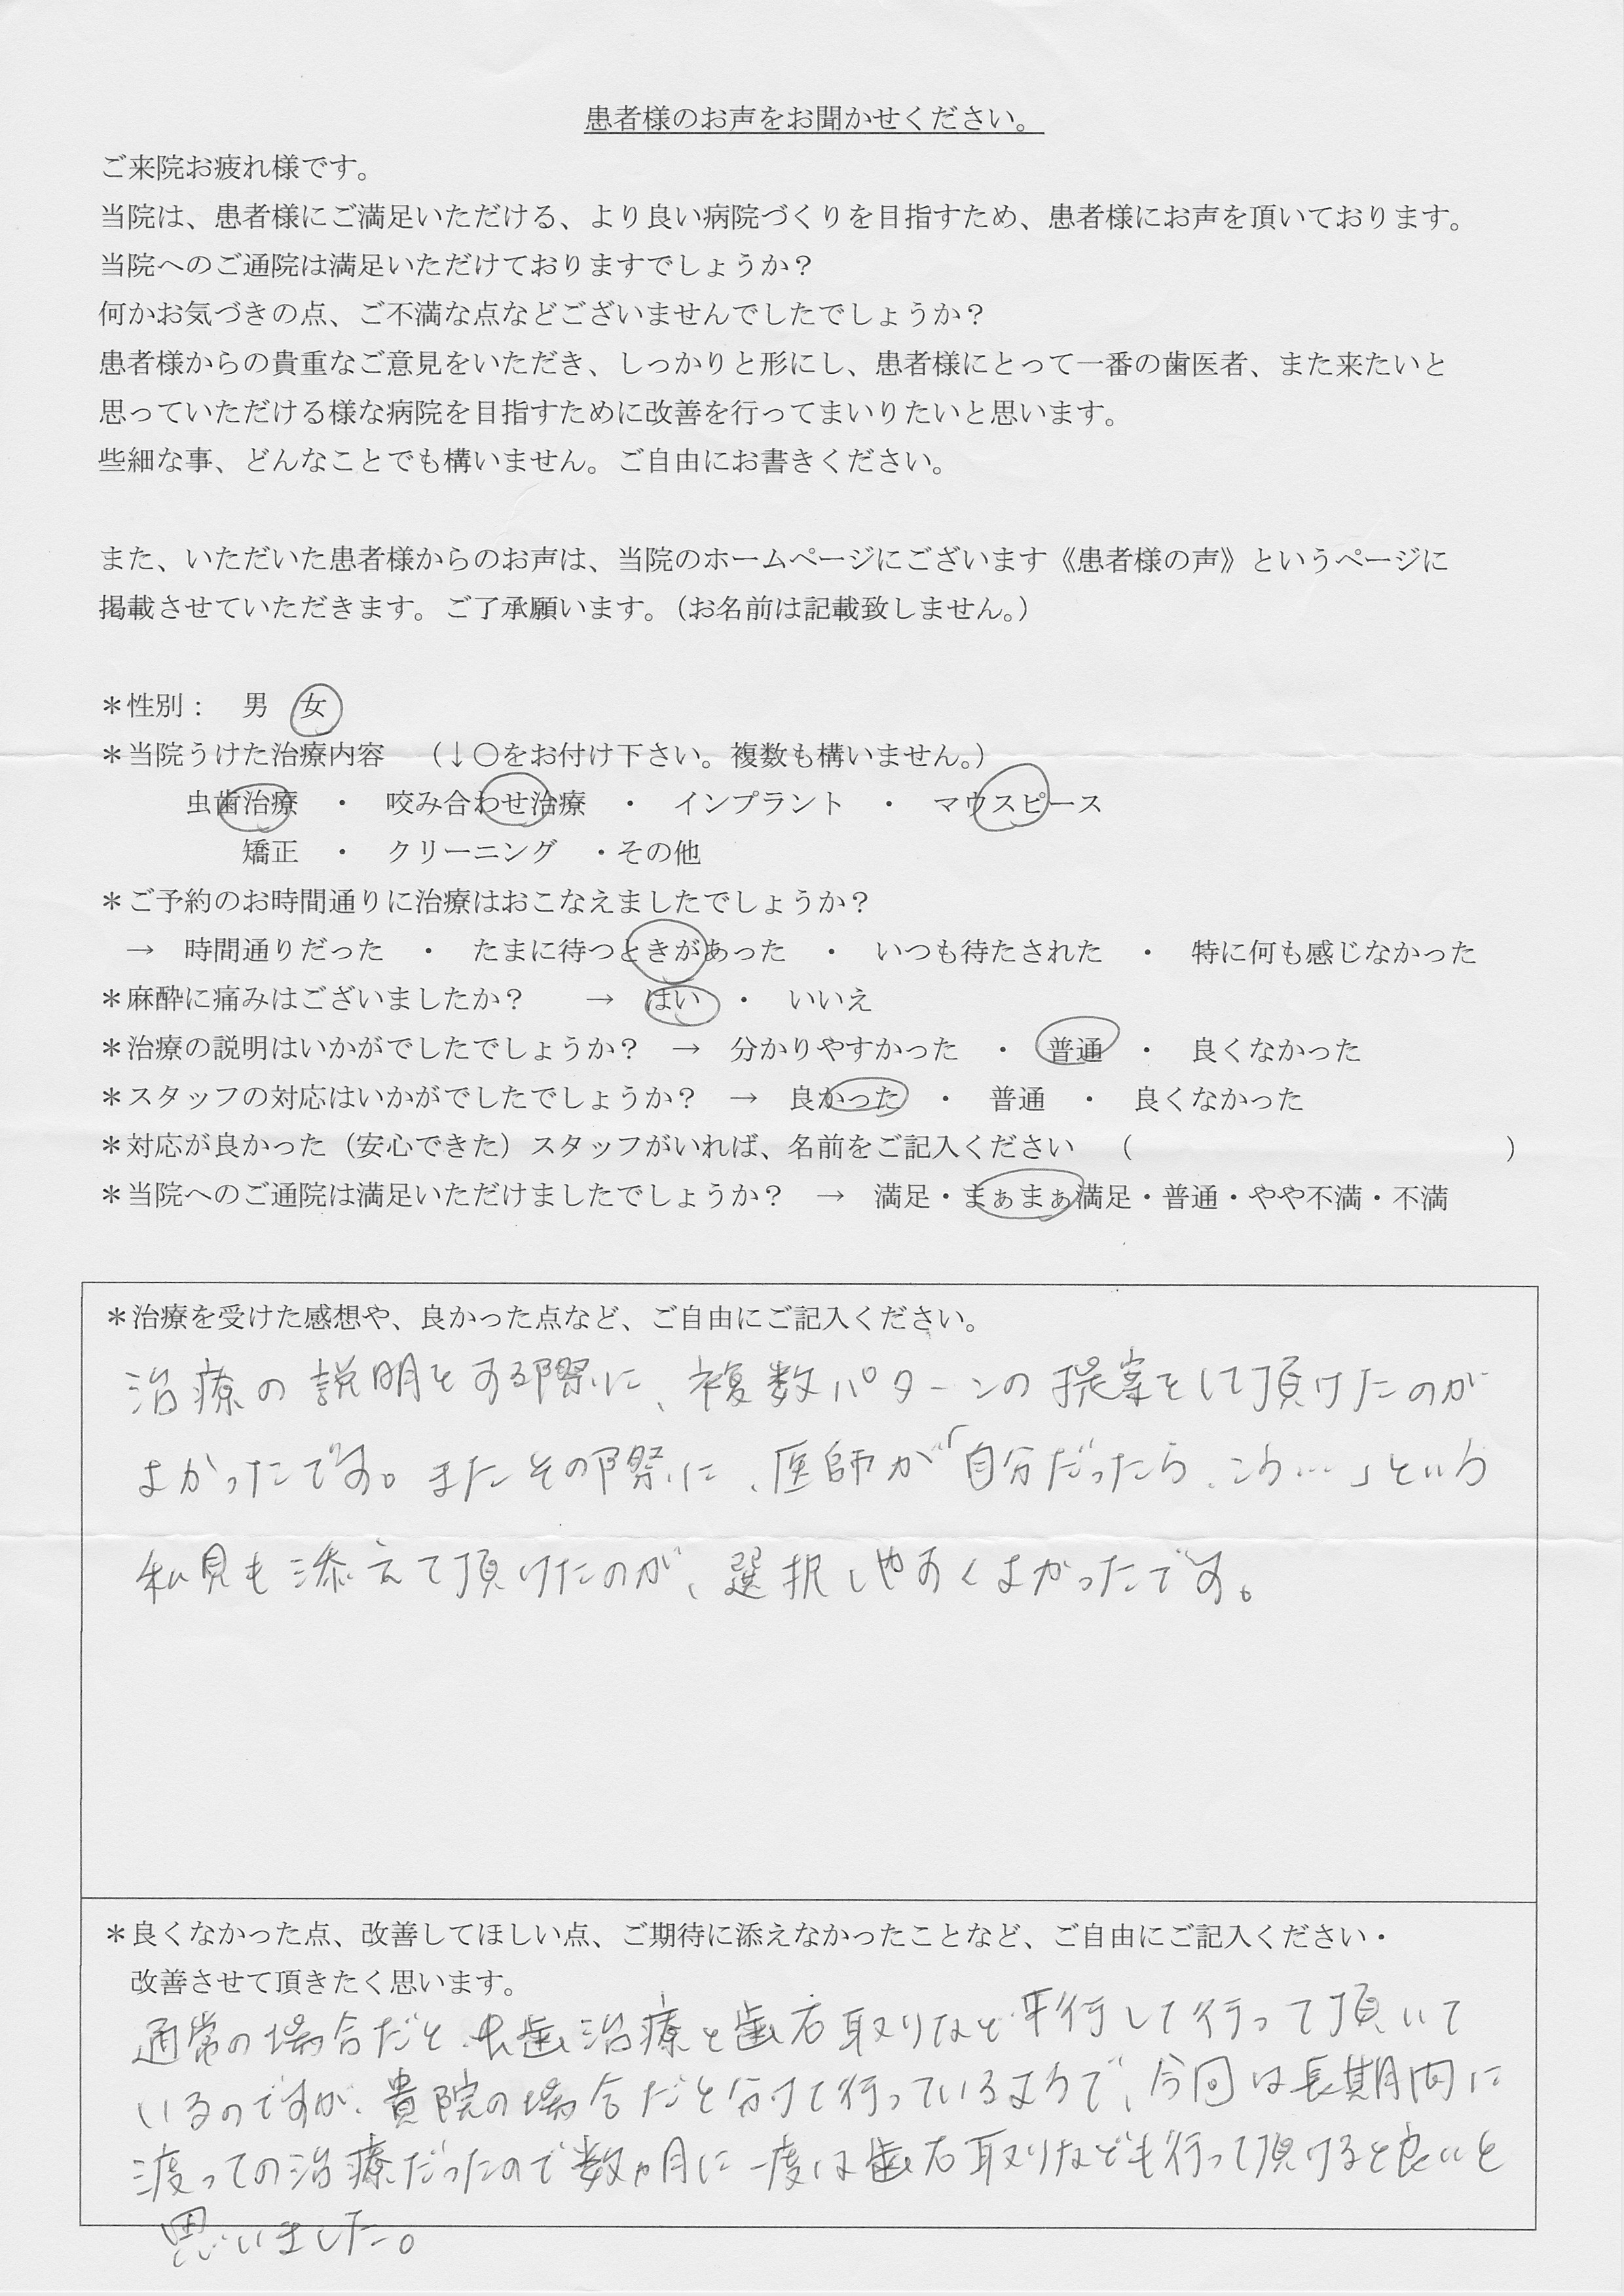 患者様のお声をお聞かせください。
ご来院お疲れ様です。
当院は、患者様にご満足いただける、より良い病院づくりを目指すため、患者様にお声を頂いております。
当院へのご通院は満足いただけておりますでしょうか？
何かお気づきの点、ご不満な点などございませんでしたでしょうか？
患者様からの貴重なご意見をいただき、しっかりと形にし、患者様にとって一番の歯医者、また来たいと
思っていただける様な病院を目指すために改善を行ってまいりたいと思います。
些細な事、どんなことでも構いません。ご自由にお書きください。
また、いただいた患者様からのお声は、当院のホームページにございます《患者様の声》というページに
掲載させていただきます。ご了承願います。（お名前は記載致しません。）
＊性別：　男　女
＊当院うけた治療内容　（↓〇をお付け下さい。複数も構いません。）
虫歯治療　・　咬み合わせ治療　・　インプラント　・　マウスピース
矯正　・　クリーニング　・その他
＊ご予約のお時間通りに治療はおこなえましたでしょうか？
→　時間通りだった　・　たまに待つときがあった　・　いつも待たされた　・　特に何も感じなかった
＊麻酔に痛みはございましたか？　→　はい　・　いいえ
＊治療の説明はいかがでしたでしょうか？　→　分かりやすかった　・　普通　・　良くなかった
＊スタッフの対応はいかがでしたでしょうか？　→　良かった　・　普通　・　良くなかった
＊対応が良かった（安心できた）スタッフがいれば、名前をご記入ください　（　　　　）
＊当院へのご通院は満足いただけましたでしょうか？　→　満足・まぁまぁ満足・普通・やや不満・不満
＊治療を受けた感想や、良かった点など、ご自由にご記入ください。
治療の説明をする際に、複数パターンの提案をして頂けたのが
よかったです。またその際に、医師が「自分だったら、こう…」という
私見も添えて頂けたのが、選択しやすくよかったです。
＊良くなかった点、改善してほしい点、ご期待に添えなかったことなど、ご自由にご記入ください・
改善させて頂きたく思います。
通常の場合だと、虫歯治療と歯石取りなど平行して行って頂いて
いるのですが、貴院の場合だと分けて行っているようで、今回は長期間に
渡っての治療だったので数ヵ月に一度は歯石取りなども行って頂けると良いと
思いました。